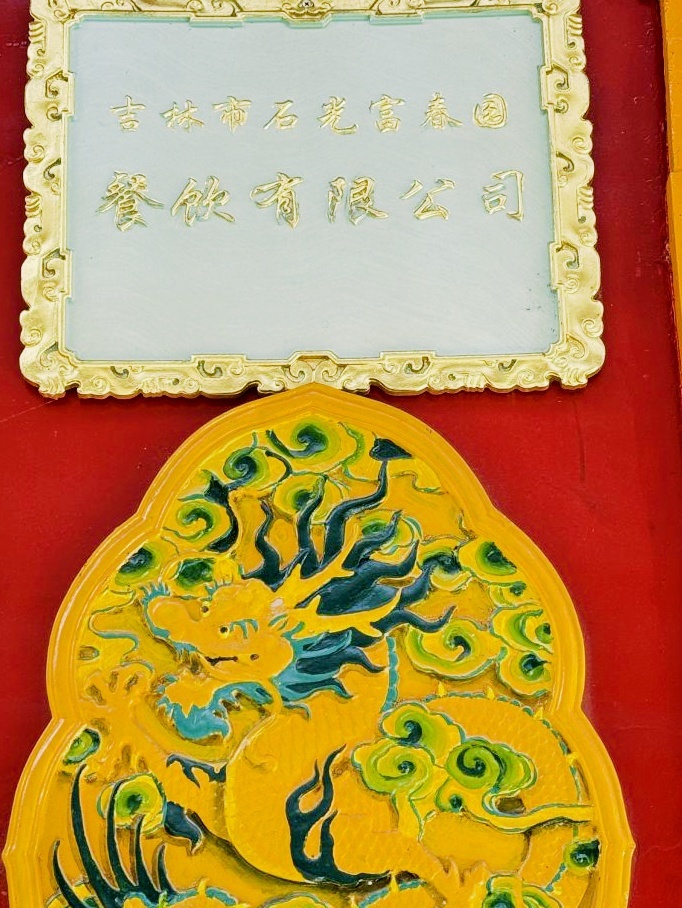 吉林市石光富春园
餐饮有限公司